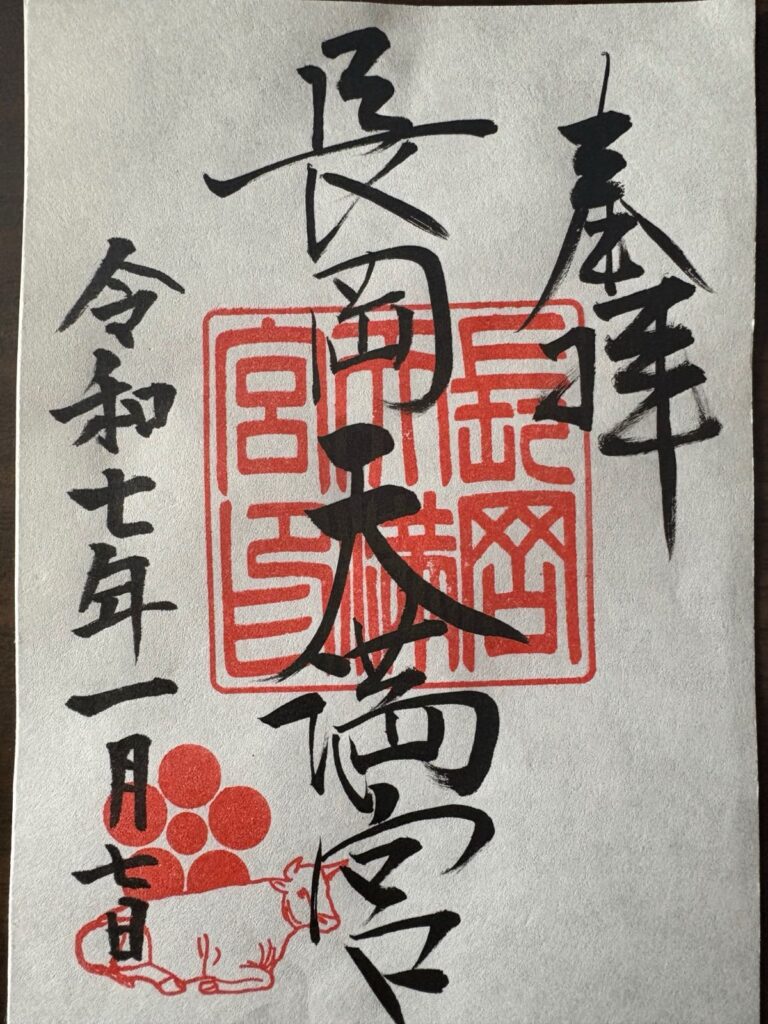 奉拝
長岡天満宮
長岡天満宮印
令和七年一月七日